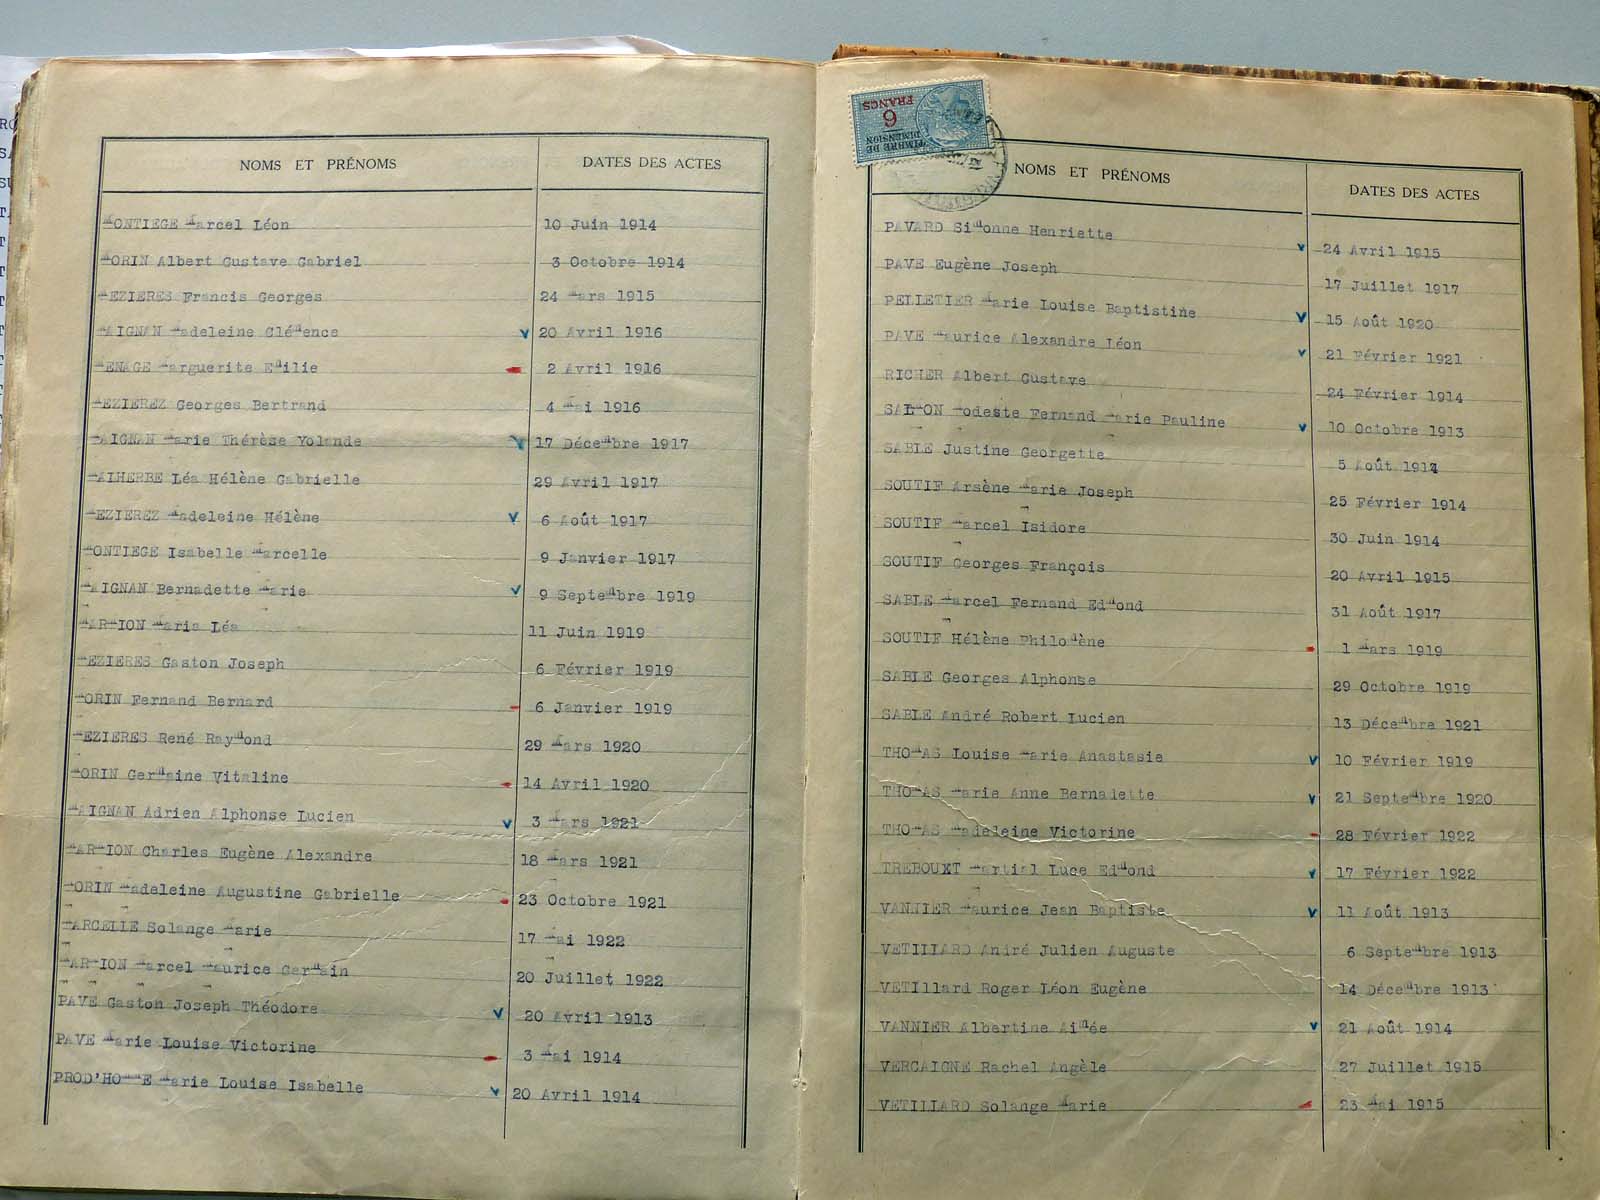 NOMS ET PRÉNOMS DATES DES ACTES
MONTIEGE Marcel Léon 10 Juin 1914
MORIN Albert Gustave Gabriel 3 Octobre 1914
MEZIERES Francis Georges 24 Mars 1915
MAIGNAN Madeleine Clémence 20 Avril 1916
MENAGE Marguerite Emilie 2 Avril 1916
MEZIEREZ Georges Bertrand 4 Mai 1916
MAIGNAN Marie Thérèse Yolande 17 Décembre 1917
MALHERBE Léa Hélène Gabrielle 29 Avril 1917
MEZIEREZ Madeleine Hélène 6 Août 1917
MONTIEGE Isabelle Marcelle 9 Janvier 1917
MAIGNAN Bernadette Marie 9 Septembre 1919
MARMION Maris Léa 11 Juin 1919
MEZIERES Gaston Joseph 6 Février 1919
MORIN Fernand Bernard 6 Janvier 1919
MEZIERES René Raymond 29 Mars 1920
MORIN Germaine Vitaline 14 Avril 1920
MAIGNAN Adrien Alphonse Lucien 3 Mars 1921
MARMION Charles Eugène Alexandre 18 Mars 1921
MORIN Madeleine Augustine Gabrielle 23 Octobre 1921
MARCELLE Solange Marie 17 Mai 1922
MARMION Marcel Maurice Germain 20 Juillet 1922
PAVE Gaston Joseph Théodore 20 Avril 1913
PAVE Marie Louise Victorine 3 Mai 1914
PROD'HOMME Marie Louise Isabelle 20 Avril 1914
TIMBRE DE
DIMENSION
6
FRANCS
NOMS ET PRÉNOMS DATES DES ACTES
PAVARD Simonne Henriette 24 Avril 1915
PAVE Eugène Joseph 17 Juillet 1917
PELLETIER Marie Louise Baptistine 15 Août 1920
PAVE Maurice Alexandre Léon 21 Février 1921
RICHER Albert Gustave 24 Février 1914
SALMON Modeste Fernand Marie Pauline 10 Octobre 1913
SABLE Justine Georgette 5 Août 1914
SOUTIF Arsène Marie Joseph 25 Février 1914
SOUTIF Marcel Isidore 30 Juin 1914
SOUTIF Georges François 20 Avril 1915
SABLE Marcel Fernand Edmond 31 Août 1917
SOUTIF Hélène Philomène 1 Mars 1919
SABLE Georges Alphonse 29 Octobre 1919
SABLE André Robert Lucien 13 Décembre 1921
THOMAS Louise Marie Anastasie 10 Février 1919
THOMAS Marie Anne Bernadette 21 Septembre 1920
THOMAS Madeleine Victorine 28 Février 1922
TREBOUXT Martial Luce Edmond 17 Février 1922
VANNIER Maurice Jean Baptiste 11 Août 1913
VETILLARD André Julien Auguste 6 Septembre 1913
VETIllard Roger Léon Eugène 14 Décembre 1913
VANNIER Albertine Aimée 21 Août 1914
VERCAIGNE Rachel Angèle 27 Juillet 1915
VETILLARD Solange Marie 23 Mai 1915